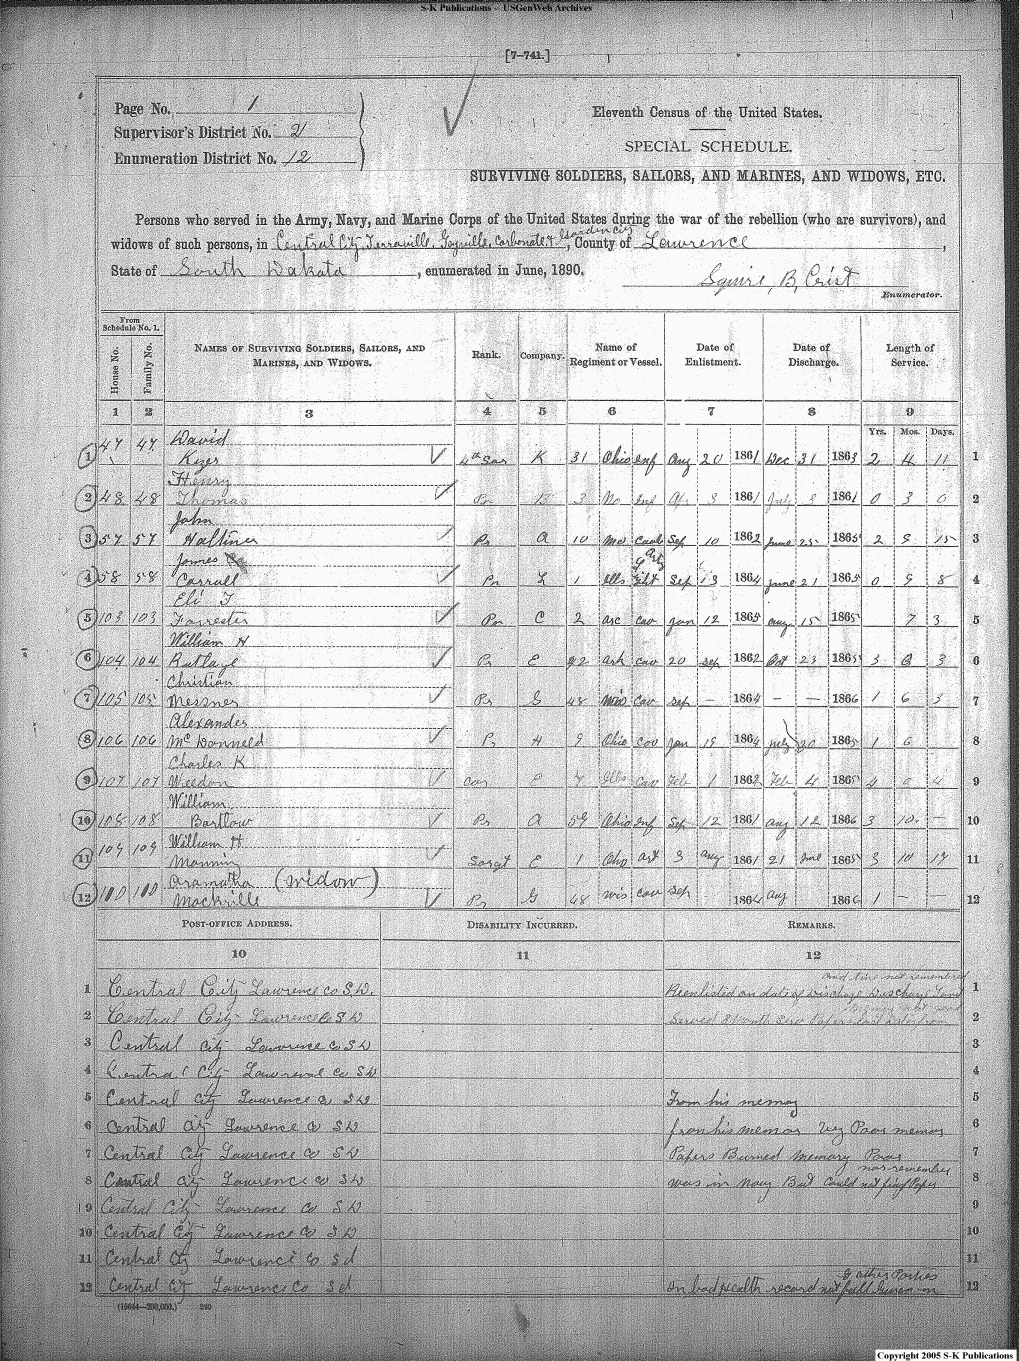 S-K Publications - USGenWeb Archives
[7-741.]
Page No. 1
Supervisor's District No. 2
Enumeration District No. 12
Eleventh Census of the United States.
SPECIAL SCHEDULE.
SURVIVING SOLDIERS, SAILORS, AND MARINES, AND WIDOWS, ETC.
Persons who served in the Army, Navy, and Marine Corps of the United States during the war of the rebellion (who are survivors), and
widows of such persons, in Central City, Terraville, Gayville, Carbonate & Garden City, County of Lawrence,
State of South Dakata, enumerated in June, 1890.
Squire, B, Crist
Enumerator.
From Schedule No. 1.
House No. Family No. NAMES OF SURVIVING SOLDIERS, SAILORS, AND MARINES, AND WIDOWS. Rank. Company. Name of Regiment or Vessel. Date of Enlistment. Date of Discharge. Length of Service.
1 2 3 4 5 6 7 8 9
Yrs. Mos. Days.
David
1 47 47 K 31 Ohio Inf Aug 20 1861 Dec 31 1863 2 4 11 1
Henry
2 48 48 Thomas 3 Inf 3 1861 July 1861 0 3 0 2
John
3 57 57 Haltiner Pr A 10 Mo Cav Sep 10 1862 June 25 1865 2 9 15 3
James
4 58 58 Carrall Pr L 1 Ills Sep 13 1864 June 21 1865 0 9 8 4
Eli F
5 103 103 Forrester Pr C 2 cav Jan 12 1865 Aug 15 1865 7 3 5
William H
6 104 104 Rutlage Pr E cav 20 Sep 1862 Oct 23 1865 3 3 6
Christian
7 105 105 Messner Pr G 48 Wis Cav Sep - 1864 - - 1866 1 6 3 7
Alexander
8 106 106 McDonneld Pr H 9 Ohio Cav Jan 19 1864 July 20 1865 1 6 8
Charles K
9 107 107 Weedon E 7 Ills Cav Feb 1 1862 Feb 4 1865 4 9
William
10 108 108 Bartlow Pr A 59 Ohio Inf Sep 12 1861 Aug 12 1866 3 10 - 10
William H
11 109 109 Mannin Sargt E 1 Ohio art 3 Aug 1861 21 June 1865 3 10 19 11
Aramatha (widow)
12 Mackrille Pr G 48 Wis cav Sep 1864 Aug 1866 1 - - 12
POST-OFFICE ADDRESS. DISABILITY INCURRED. REMARKS.
10 11 12
and time not remembered
1 Central City Lawrence Co S.D. Reenlisted on date of Discharge 1
2 Central City Lawrence Co S D Served 3 Month 2
3 Central City Lawrence Co S D 3
4 Central City Lawrence Co S D 4
5 Central City Lawrence Co S D From his memory 5
6 Central City Lawrence Co S D from his memory Very Poor memory 6
7 Central City Lawrence Co S D Papers Burned Memory Poor 7
8 Central City Lawrence Co S D was in Navy But could not find Paper nor remember 8
9 Central City Lawrence Co S D 9
10 Central City Lawrence Co S D 10
11 Central City Lawrence Co S d 11
12 Central City Lawrence Co S d in bad Health record not full 12
(19644-200,000.) 240
Copyright 2005 S-K Publications